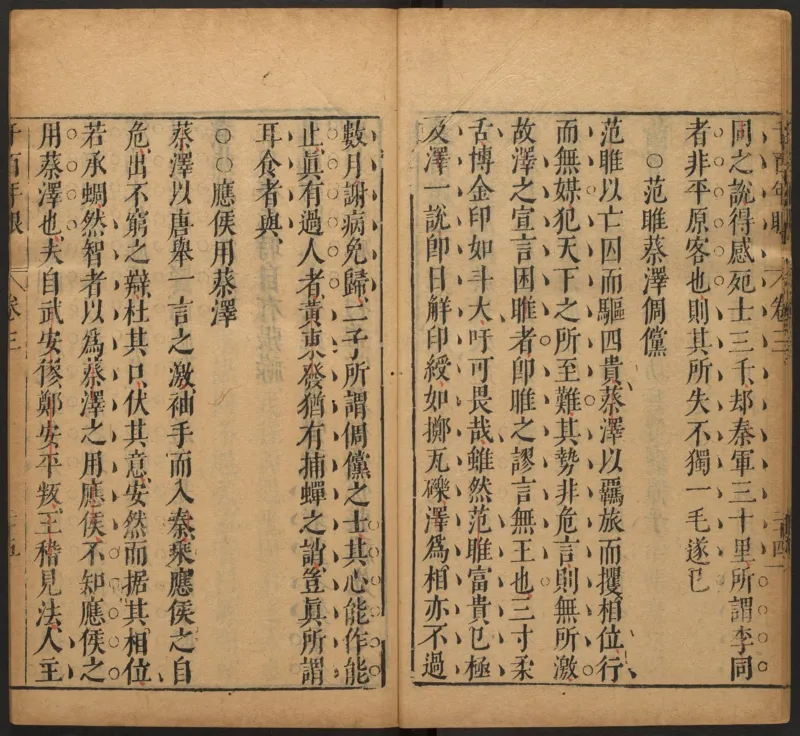 同之說得感死士三千却秦軍三十里所謂李同
者非平原客也則其所失不獨一毛遂已
○范雎蔡澤倜儻
范雎以亡囚而驅四貴蔡澤以羈旅而攫相位行
而無媒犯天下之所至難其勢非危言則無所激
故澤之宣言困雎者卽雎之謬言無王也三寸柔
舌博金印如斗大吁可畏哉雖然范雎富貴已極
及澤一說卽日解印綬如擲瓦礫澤爲相亦不過
數月謝病免歸二子所謂倜儻之士其心能作能
止眞有過人者黃東發猶有捕蟬之誚豈眞所謂
耳食者與
○○應侯用蔡澤
蔡澤以唐舉一言之激袖手而入秦乘應侯之自
危出不窮之辯杜其口伏其意安然而据其相位
若承蜩然智者以爲蔡澤之用應侯不知應侯之
用蔡澤也夫自武安僇鄭安平叛王稽見法人主
千百年眼 卷三